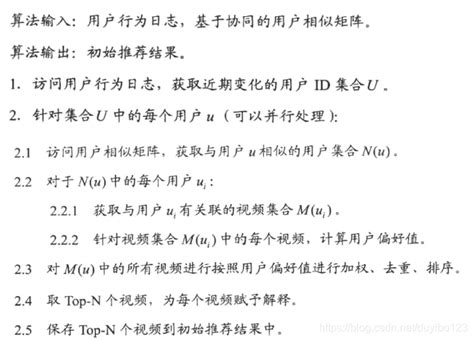 算法输入：用户行为日志，基于协同的用户相似矩阵。
算法输出：初始推荐结果。
1. 访问用户行为日志，获取近期变化的用户 ID 集合 U 。
2. 针对集合 U 中的每个用户 u（可以并行处理）：
2.1 访问用户相似矩阵，获取与用户 u 相似的用户集合 N(u) 。
2.2 对于 N(u) 中的每个用户 uᵢ：
2.2.1 获取与用户 uᵢ 有关联的视频集合 M(uᵢ) 。
2.2.2 针对视频集合 M(uᵢ) 中的每个视频，计算用户偏好值。
2.3 对 M(u) 中的所有视频进行按照用户偏好值进行加权、去重、排序。
2.4 取 Top-N 个视频，为每个视频赋予解释。
2.5 保存 Top-N 个视频到初始推荐结果中。
https://blog.csdn.net/duyibo123